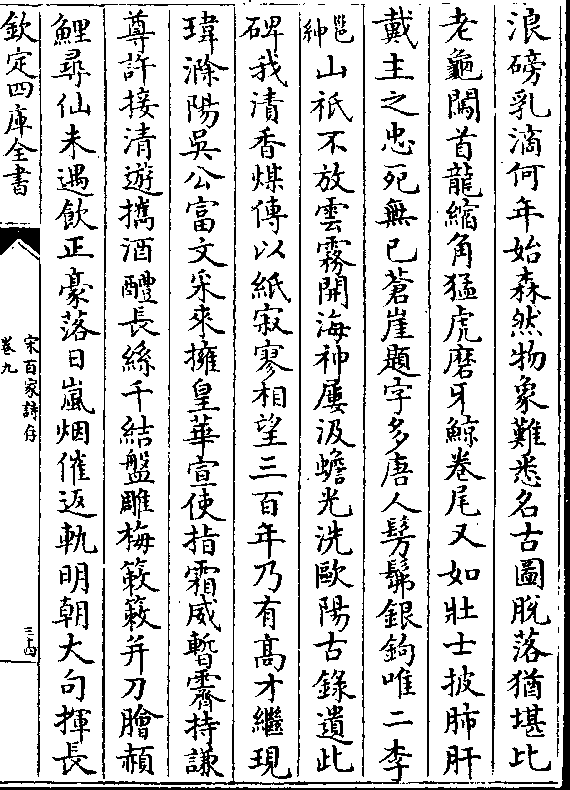 浪磅乳滴何年始森然物象難悉名古圖脫落猶堪比
老龜闖首龍縮角猛虎磨牙鯨卷尾又如壯士披肺肝
戴主之忠死無已蒼崖題字多唐人髣髴銀鉤唯二李
邕紳山祇不放雲霧開海神屢汲蟾光洗歐陽古錄遺此
碑我漬香煤傳以紙寂寥相望三百年乃有高才繼現
瑋滁陽吳公富文采來擁皇華宣使指霜威暫霽持謙
尊許接清遊攜酒醴長絲千結盤雕梅簌簌并刀膾赬
鯉尋仙未遇飲正豪落日嵐烟催返軌明朝大句揮長
欽定四庫全書
宋百家詩存
卷九
三十四